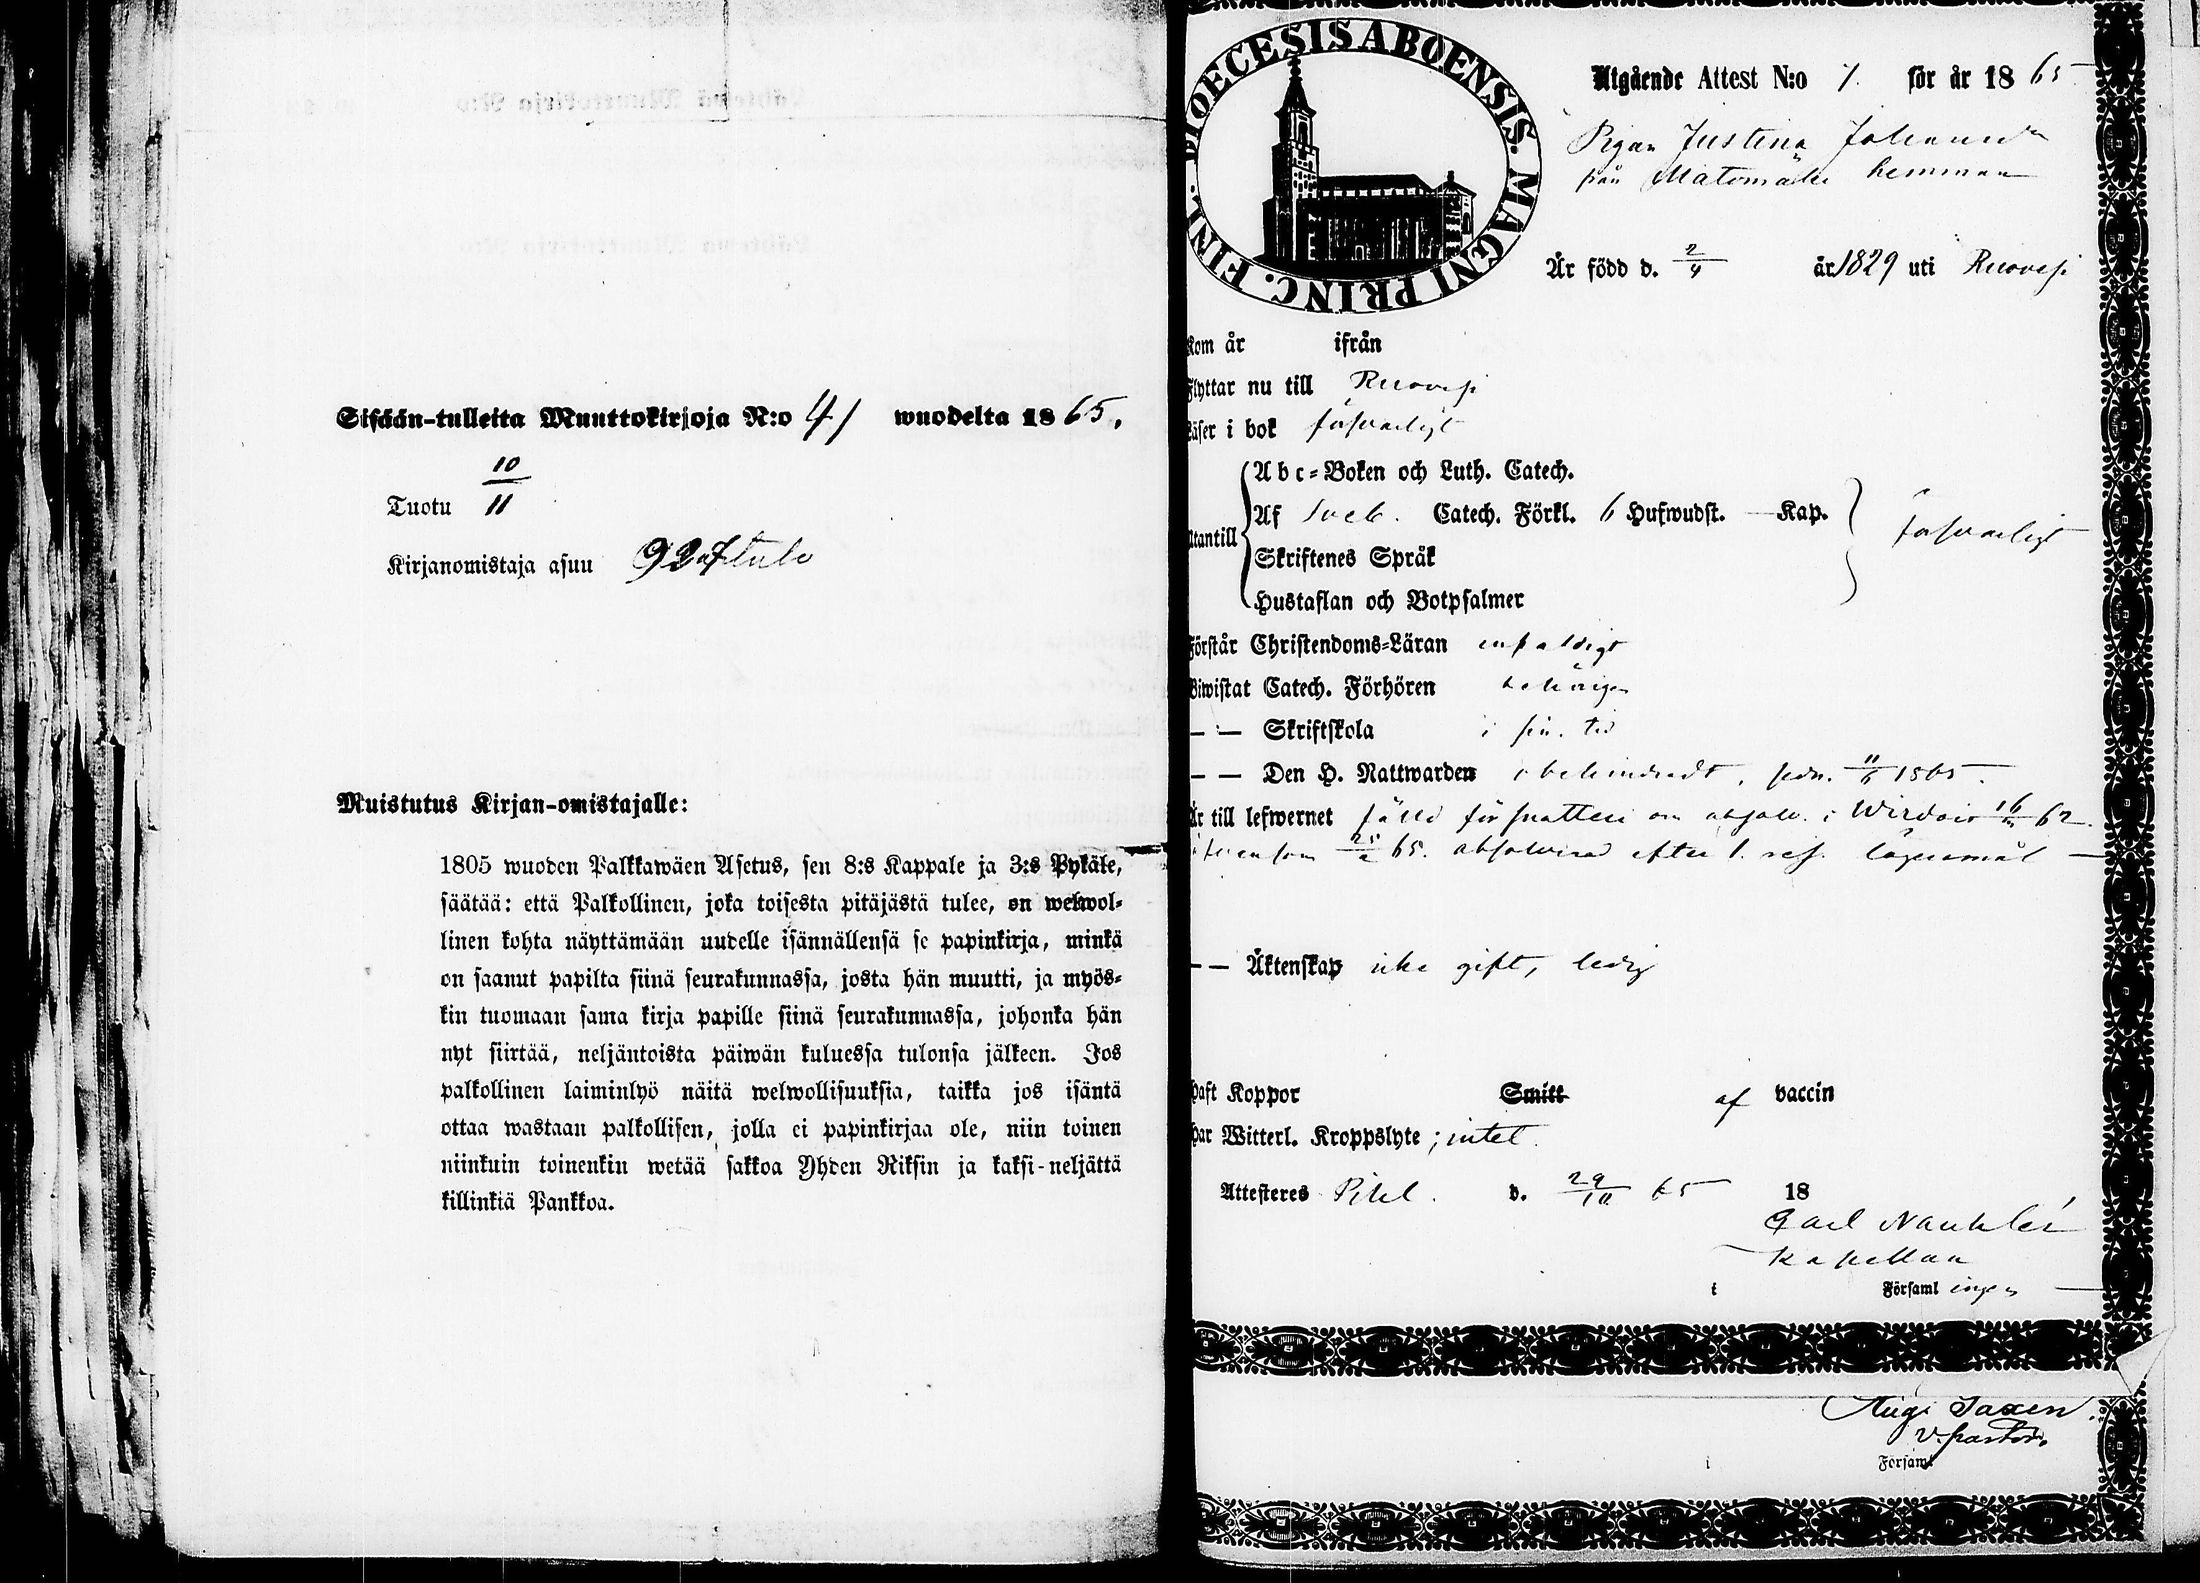 Sisään-tulleita Muuttokirjoja N:o 41 wuodelta 1865.
Tuotu 10/11
Kirjanomistaja asuu
Muistutus Kirjan-omistajalle:
1805 wuoden Palkkawäen Asetus, sen 8:s Kappale ja 3:s Pykäle,
säätää: että Palkollinen, joka toisesta pitäjästä tulee, on welwol-
linen kohta näyttämään uudelle isännällensä se papinkirja, minkä
on saanut papilta siinä seurakunnassa, josta hän muutti, ja myös-
kin tuomaan sama kirja papille siinä seurakunnassa, johonka hän
nyt siirtää, neljäntoista päiwän kuluessa tulonsa jälkeen. Jos
palkollinen laiminlyö näitä welwollisuuksia, taikka jos isäntä
ottaa wastaan palkollisen, jolla ei papinkirjaa ole, niin toinen
niinkuin toinenkin wetää sakkoa Yhden Riksin ja kaksi-neljättä
killinkiä Pankkoa.
DIOECESIS ABOENSIS. MAGNI PRINC. FINL.
Utgående Attest N:o 7. för år 1865
Pigan Justina Johansdr
från Matomäki hemman
Är född d. 2/4 år 1829 uti Ruovesi
Kom år ifrån
Flyttar nu till Ruovesi
Läser i bok försvarligt
Abc-Boken och Luth. Catech.
Utantill Af Sveb. Catech. Förkl. 6 Hufwudst. — Kap. försvarligt
Skriftenes Språk
Hustaflan och Botpsalmer
Förstår Christendoms-Läran enfaldigt
Biwistat Catech. Förhören behörigen
— — Skriftskola i sin tid
— — Den H. Nattwarden obehindradt, sedn. 11/6 1865.
Är till lefwernet fälld för snatteri om absolv. i Wirdois 16/ 62.
äfvensom 25/ 65. absolverad efter 1. res. lägersmål —
— — Äktenskap icke gift, ledig
Haft Koppor Smitt af vaccin
Har Witterl. Kroppslyte ; intet.
Attesteres Pihl. d. 29/10 65 18
Carl Nauklér
Kapellan
i Församlingen
Aug. Saxen.
V. pastor.
i Församl